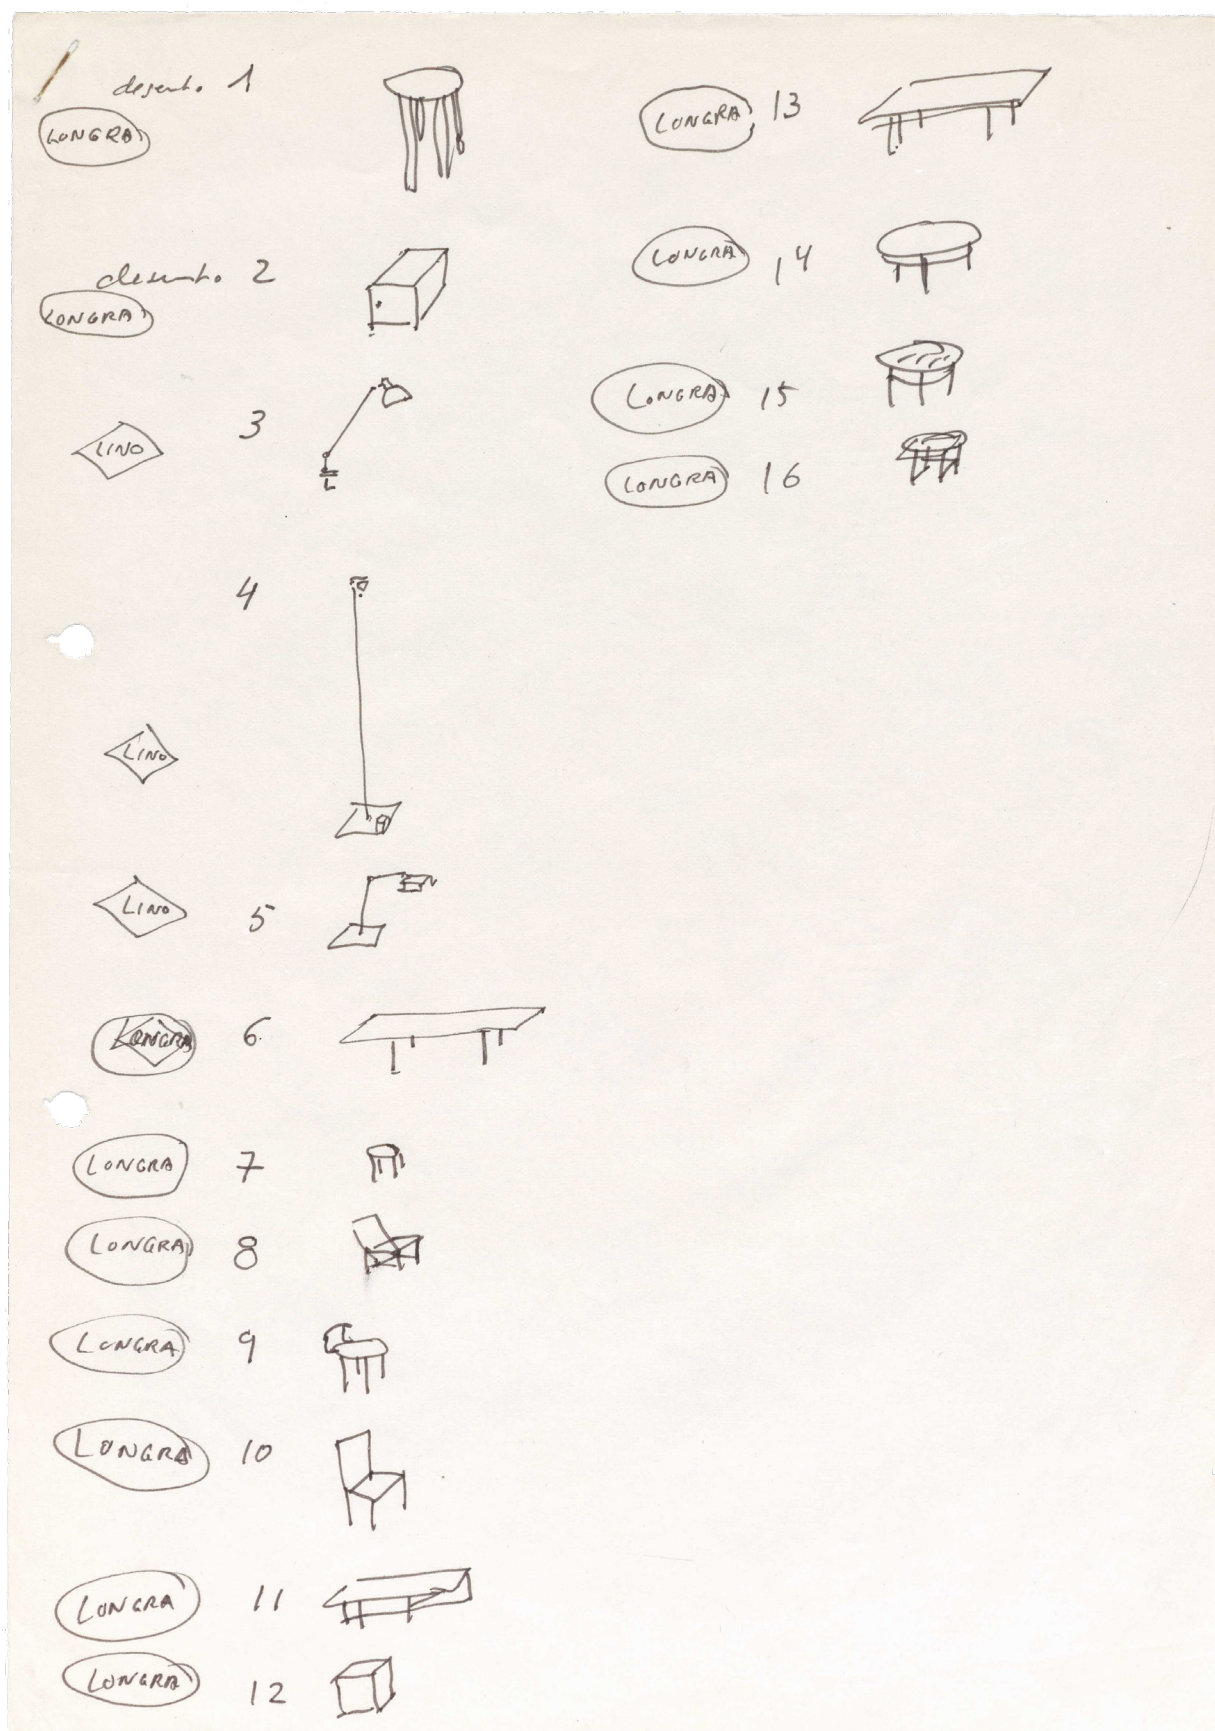 desenho 1
LONGRA
desenho 2
LONGRA
3
LINO
4
LINO
LINO 5
LONGRA 6
LONGRA 7
LONGRA 8
LONGRA 9
LONGRA 10
LONGRA 11
LONGRA 12
LONGRA 13
LONGRA 14
LONGRA 15
LONGRA 16